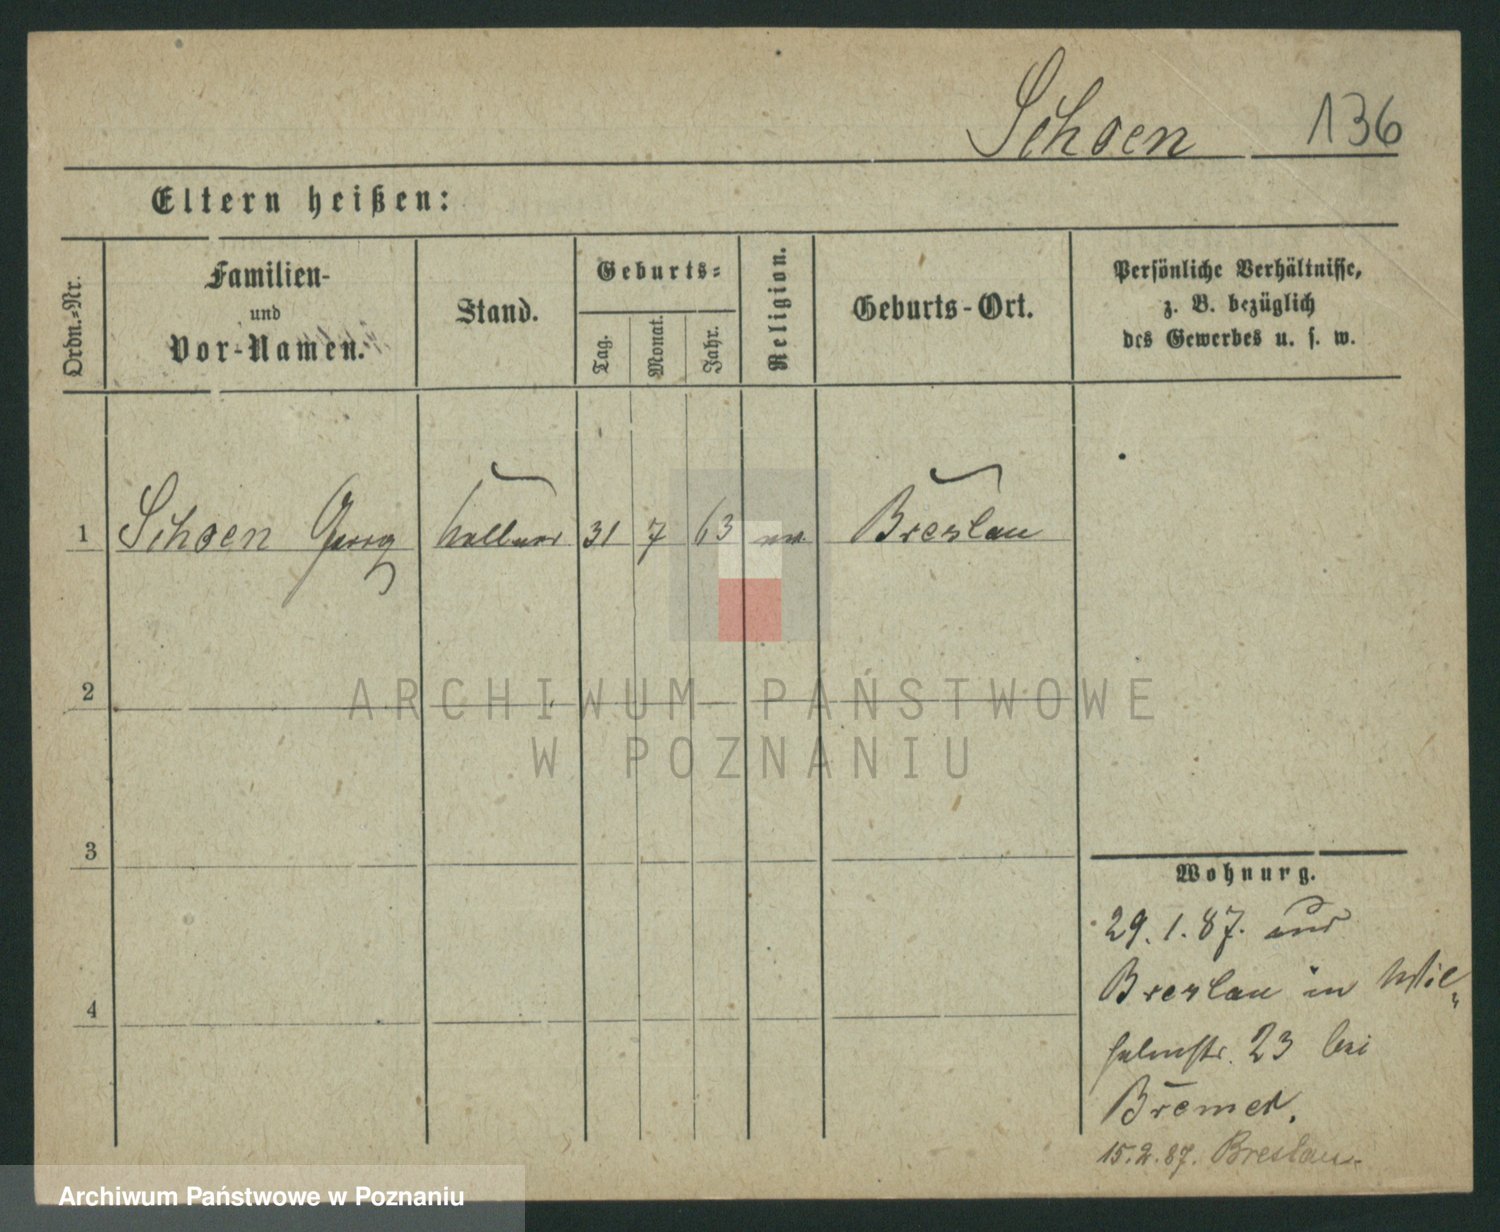 Schoen 136
Eltern heißen:
Ordn.-Nr.
Familien-
und
Vor-Namen.
Stand.
Geburts-
Tag.
Monat.
Jahr.
Religion.
Geburts-Ort.
Persönliche Verhältnisse,
z. B. bezüglich
des Gewerbes u. s. w.
1 Schoen Georg Kellner 31 7 63 Breslau
2
ARCHIWUM PAŃSTWOWE
W POZNANIU
3
4
Wohnung.
29. 1. 87. aus
Breslau in Wil-
helmstr. 23 bei
Bremer.
15. 2. 87. Breslau.
Archiwum Państwowe w Poznaniu